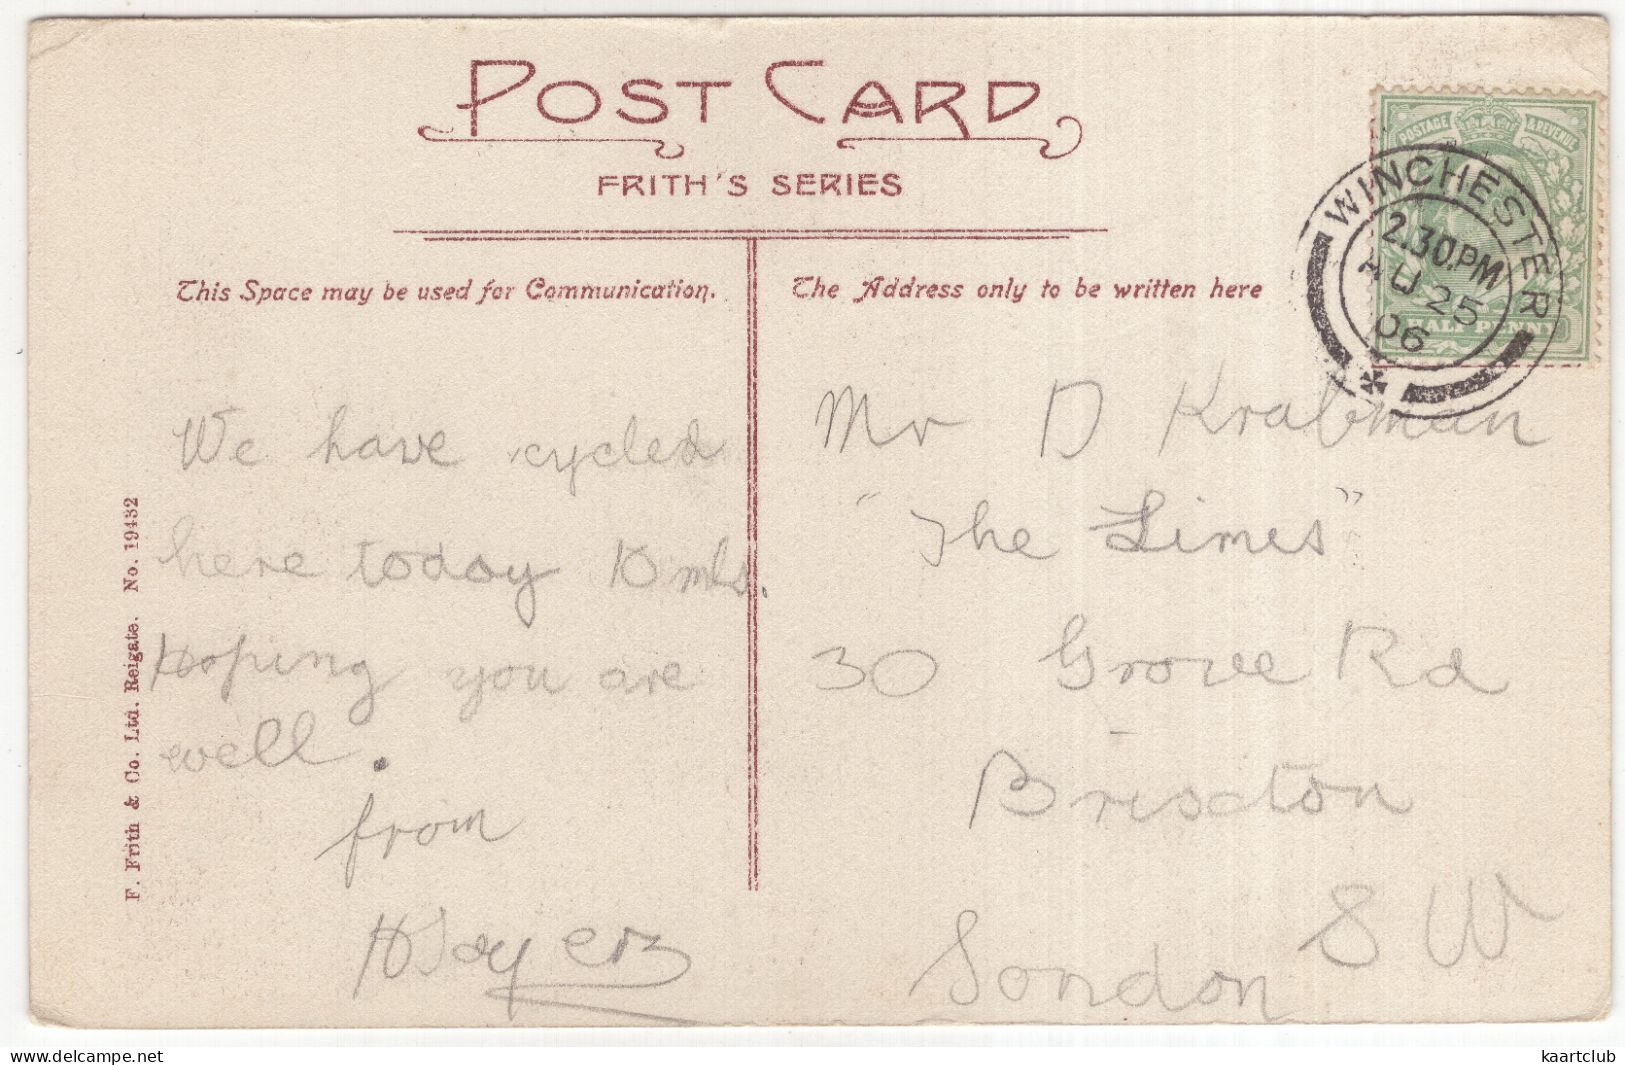 POST CARD
FRITH'S SERIES
This Space may be used for Communication.
The Address only to be written here
POSTAGE & REVENUE
HALF PENNY
WINCHESTER
2.30 PM
AU 25
06
We have cycled
here today 10 mls.
Hoping you are
well.
from
Mr D Krabman
"The Limes"
30 Grove Rd
Brixton
London S W
F. Frith & Co. Ltd. Reigate. No. 19432
kaartclub